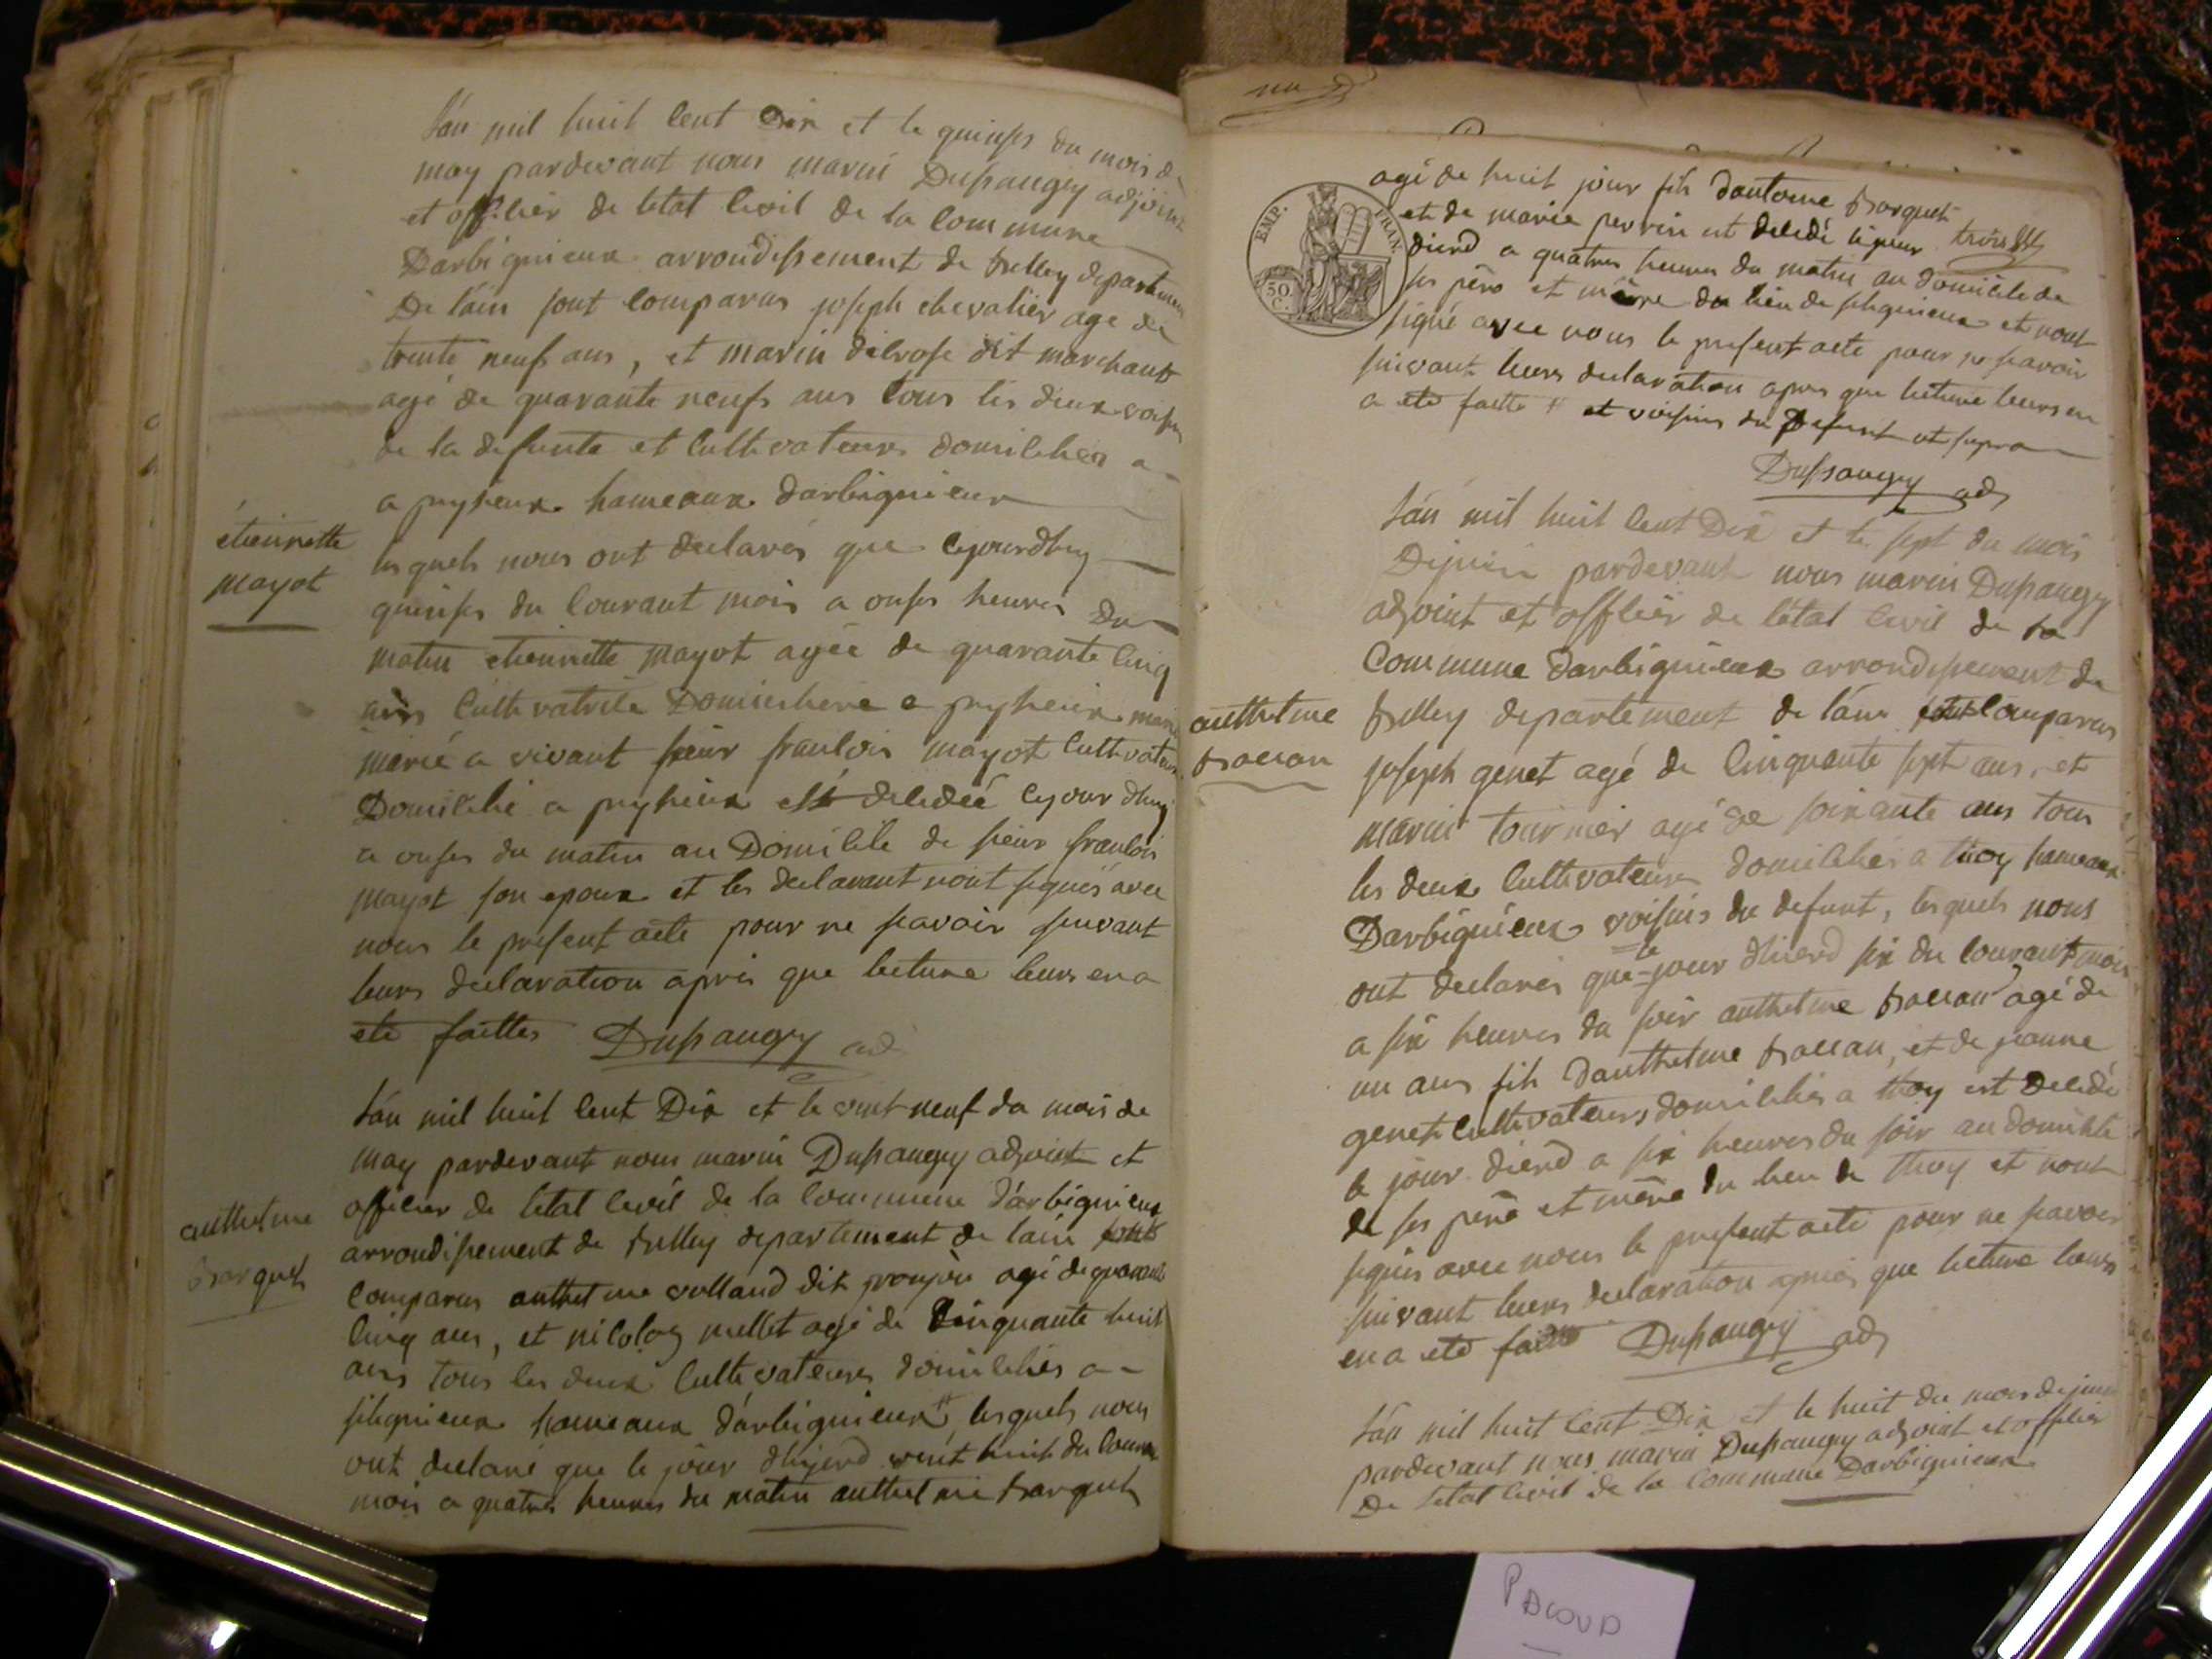 Lán mil huit Cent Dix et le quinses du mois de
may pardevant nous marin Dupaugey adjoint
et officier de letat Civil de la Commune
Darbignieux arrondissement de Belley departement
De lain sont Comparus joseph chevalier age de
trente neufs ans, et marin delrose dit marchant
agé de quarante neufs ans tous les deux voisin
de la defunte et Cultivateurs domicilies a
a pugieux hameaux darbignieux
étiennette
mayot
les quels nous ont declarés que Cejourdhuy
quinses du Courant mois a onses heures du
matin etiennette mayot agée de quarante Cinq
ans Cultivatrice Domiciliere a pugieux
marié a vivant sieur francois mayot Cultivateur
Domicilié a pugieux est decedeé Cejour dhuy
a onses du matin au Domicile de sieur francois
mayot son epoux et les declarant nont signés avec
nous le present acte pour ne scavoir suivant
leurs declaration aprés que lecture leurs en a
eté faittes Dupaugey adj
Lán mil huit Cent Dix et le vint neuf du mois de
may pardevant nous marin Dupaugey adjoint et
anthelme
Barquet
officier de letat Civil de la Commune dárbignieux
arrondissement de Belley departement de lain sont
Comparus anthelme volland dit agé de quarante
Cinq ans, et nicolas mellet agé de Cinquante huit
ans tous les deux Cultivateurs domiciliés a
silignieux hameaux dárbignieux # les quels nous
ont declaré que le jour dhyerd vint huit du Courant
mois a quatres heures du matin anthelme Barquet
agé de huit jour fils dantoine Barquet
et de marie perrin est decedé
dierd a quatres heures du matin au domicile de
ses pére et mére du lieu de silignieux et nont
signé avec nous le present acte pour ne scavoir
suivant leurs declaration apres que lecture leurs en
a eté faitte # et voisins du Defunt ut supra
Dupaugey adj
EMP. FRAN.
50 C.
Lán mil huit Cent Dix et le sept du mois
Dejuin pardevant nous marin Dupaugey
adjoint et officier de létat Civil de la
Commune darbignieux arrondissement de
anthelme
Baccon
Belley departement de láin sont Comparus
joseph genet agé de Cinquante sept ans, et
marin tournier agé de soixante ans tous
les deux Cultivateurs domiciliés a thoy hameaux
Darbignieux voisins du defunt, les quels nous
ont declarés que le jour dhierd six du Courant mois
a six heures du soir anthelme Baccon agé de
un ans fils danthelme Baccon, et de jeanne
genet Cultivateurs domiciliés a thoy est decedé
le jour dierd a six heures du soir au domicile
de ses pére et mére du lieu de thoy et nont
signés avec nous le present acte pour ne scavoir
suivant leurs declaration aprés que lecture leurs
en a eté faitte Dupaugey adj
Lán mil huit Cent Dix et le huit du mois dejuin
pardevant nous marin Dupaugey adjoint et officier
De letat Civil de la Commune Darbignieux
PACOUD